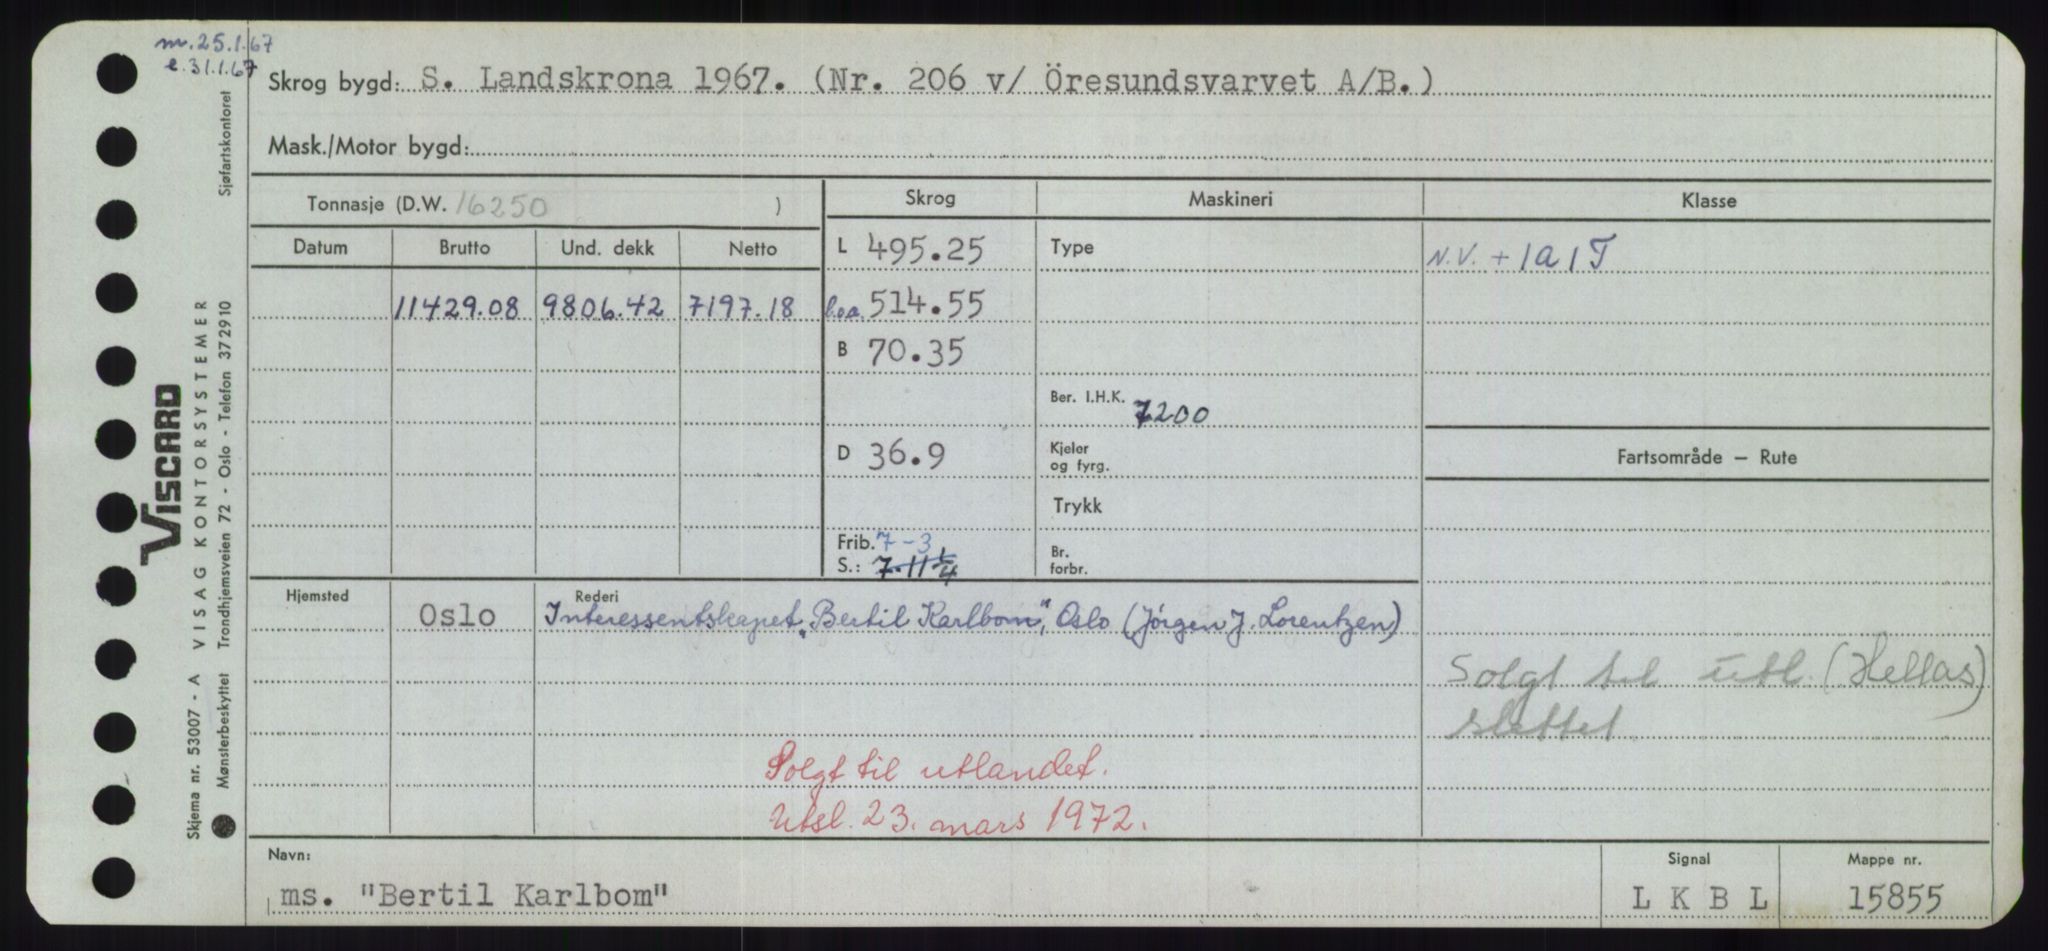 m. 25.1.67
e. 31.1.67
Skrog bygd: S. Landskrona 1967. (Nr. 206 v/ Öresundsvarvet A/B.)
Mask./Motor bygd:
Tonnasje (D.W. 16250 )
Skrog
Maskineri
Klasse
Datum
Brutto
Und. dekk
Netto
L 495.25
Type
N.V. + 1a1T
11429.08 9806.42 7197.18
l.o.a. 514.55
B 70.35
Ber. I.H.K. 7200
D 36.9
Kjeler
og fyrg.
Fartsområde – Rute
Trykk
Frib. 7-3
S.: 7.11 1/4
Br.
forbr.
Hjemsted
Oslo
Rederi
Interessentskapet „Bertil Karlbom", Oslo (Jörgen J. Lorentzen)
Solgt til utl. (Hellas)
slettet
Solgt til utlandet.
Utsl. 23. mars 1972.
Navn:
ms. "Bertil Karlbom"
Signal
L K B L
Mappe nr.
15855
VISCARD
VISAG KONTORSYSTEMER
Skjema nr. 53007 - A
Mønsterbeskyttet
Trondhjemsveien 72 - Oslo - Telefon 372910
Sjøfartskontoret